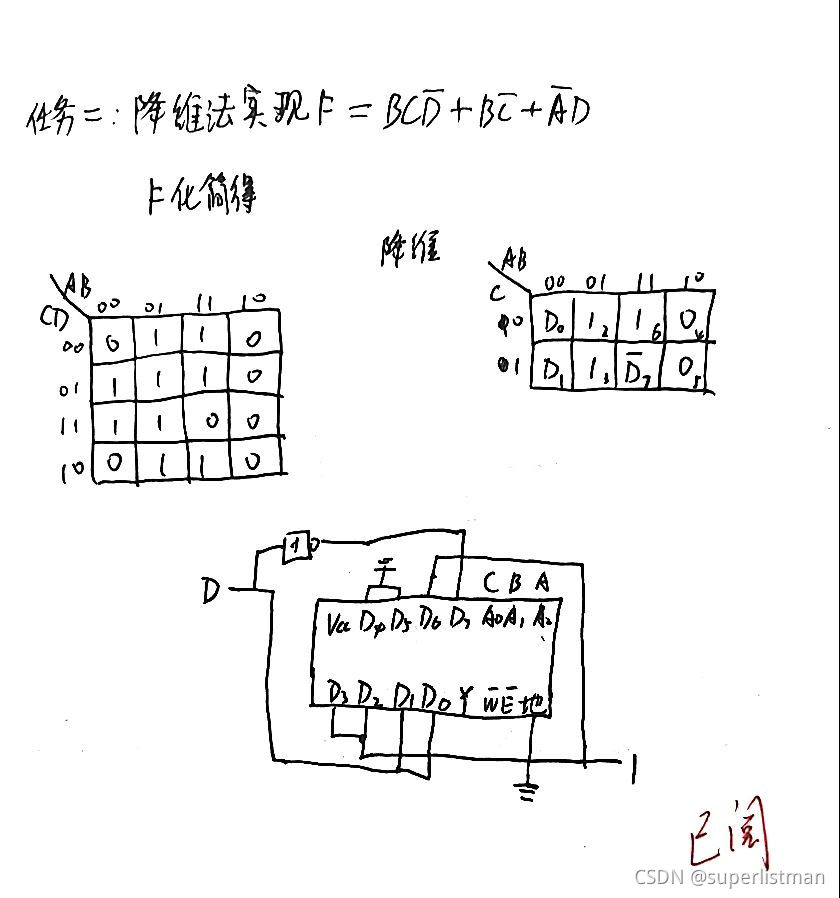 任务二:降维法实现F = BCD̅ + BC̅ + A̅D
F化简得
降维
AB
CD 00 01 11 10
00 0 1 1 0
01 1 1 1 0
11 1 1 0 0
10 0 1 1 0
AB
C 00 01 11 10
00 D₀ 1₂ 1₆ 0₄
01 D₁ 1₃ D̅₇ 0₅
1
D
C B A
Vcc D4 D5 D6 D7 A0 A1 A2
D3 D2 D1 D0 Y W̅ E̅ 地
1
已阅
CSDN @superlistman